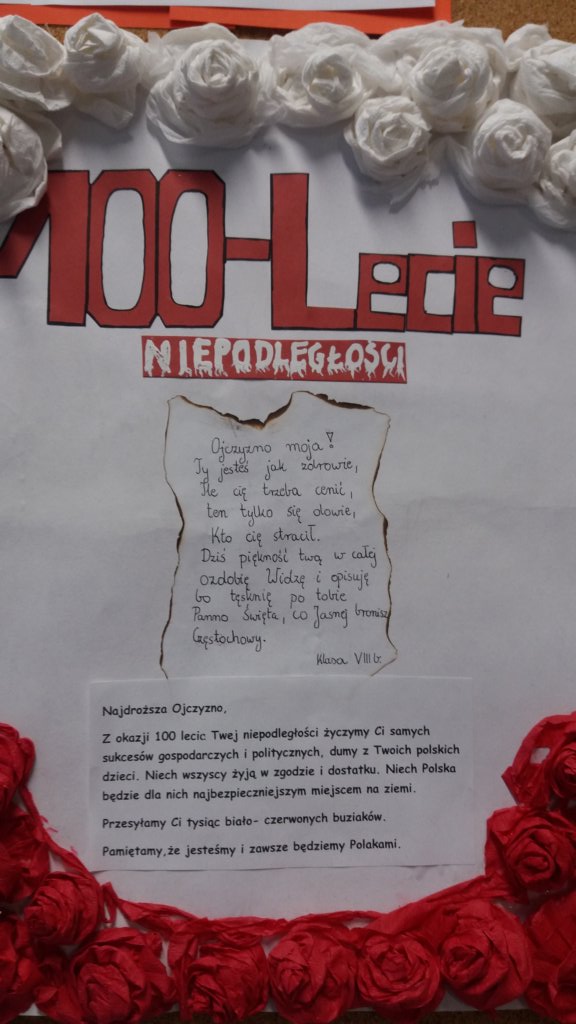 100-Lecie
NIEPODLEGŁOŚCI
Ojczyzno moja!
Ty jesteś jak zdrowie,
Ile cię trzeba cenić,
ten tylko się dowie,
Kto cię stracił.
Dziś piękność twą w całej
ozdobię Widzę i opisuję
bo tęsknię po tobie
Panno Święta, co Jasnej bronisz
Częstochowy.
Klasa VIII b.
Najdroższa Ojczyzno,
Z okazji 100 lecic Twej niepodległości życzymy Ci samych
sukcesów gospodarczych i politycznych, dumy z Twoich polskich
dzieci. Niech wszyscy żyją w zgodzie i dostatku. Niech Polska
będzie dla nich najbezpieczniejszym miejscem na ziemi.
Przesyłamy Ci tysiąc biało- czerwonych buziaków.
Pamiętamy,że jesteśmy i zawsze będziemy Polakami.